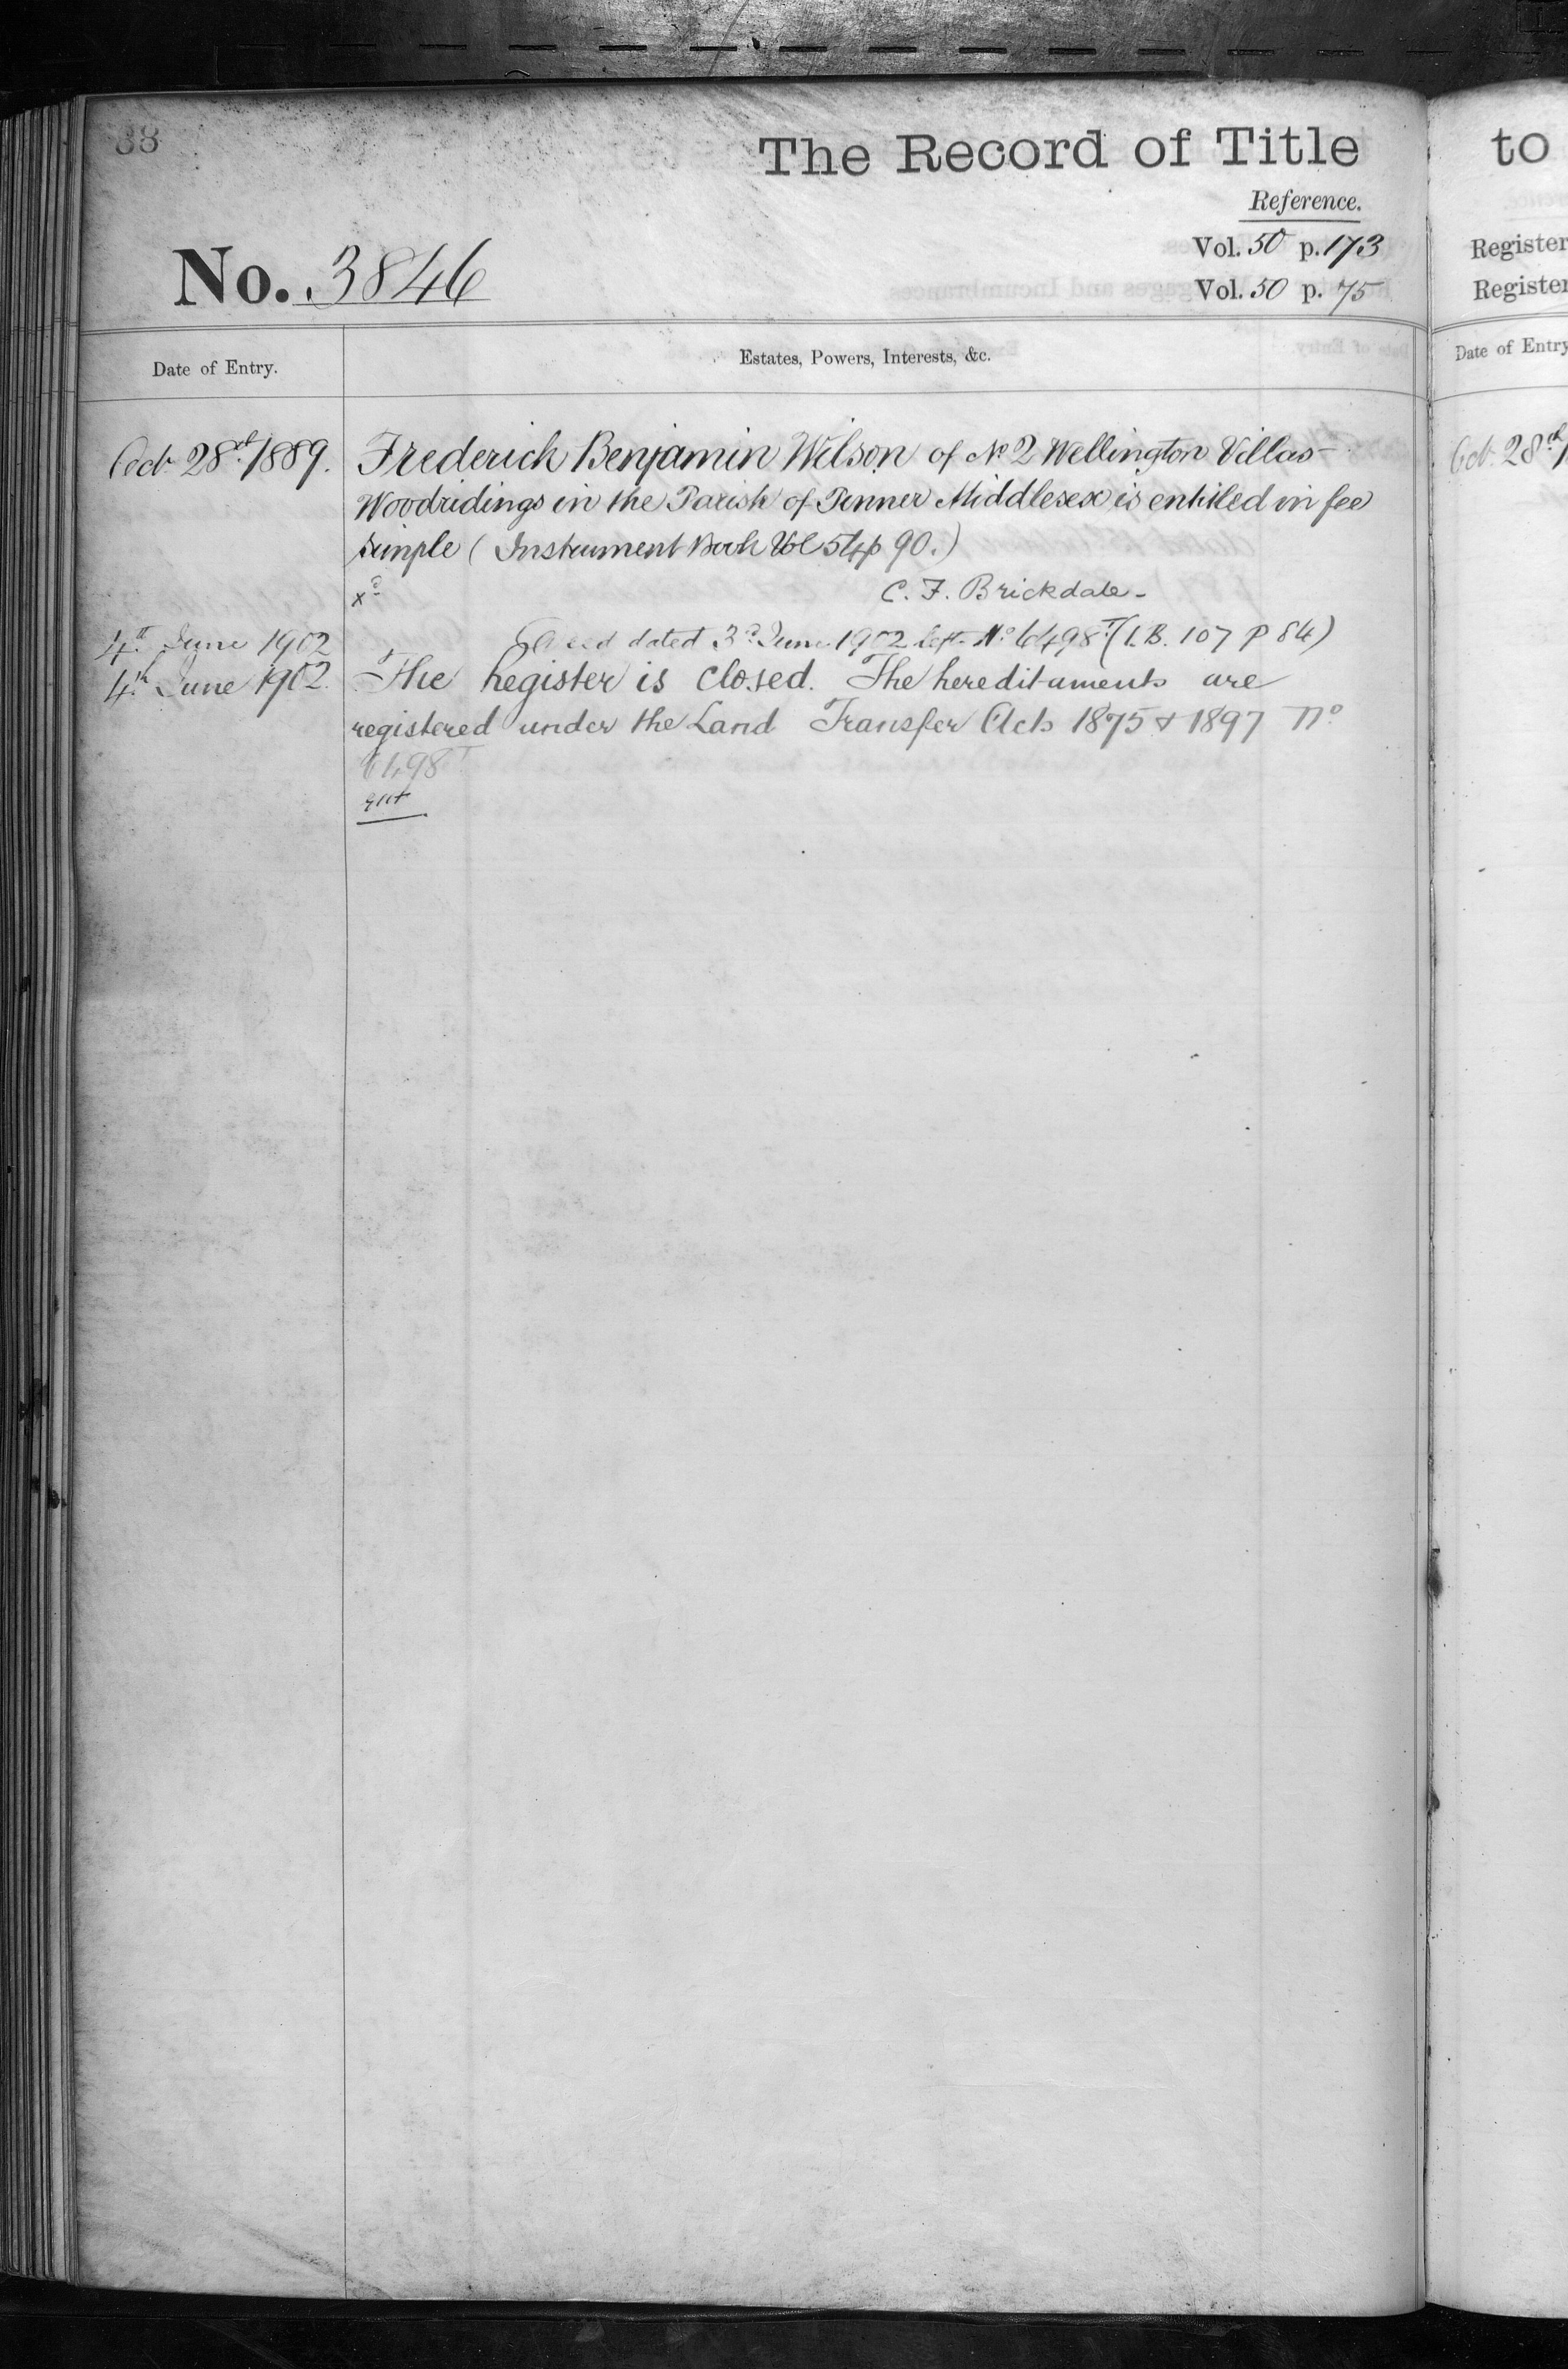 88
The Record of Title
Reference.
Vol. 50 p. 173
No. 3846
Vol. 50 p. 75
Date of Entry.
Estates, Powers, Interests, &c.
Oct 28th 1889.
Frederick Benjamin Wilson of No 2 Wellington Villas -
Woodridings in the Parish of Pinner Middlesex is entitled in fee
simple (Instrument Book Vol 54 p 90.)
C. F. Brickdale -
4th June 1902
Deed dated 3d June 1902 left No 6498T (I.B. 107 p 84)
4th June 1902.
The Register is closed. The hereditaments are
registered under the Land Transfer Acts 1875 & 1897 No
6498T
to
Register
Register
Date of Entry
Oct. 28th 1